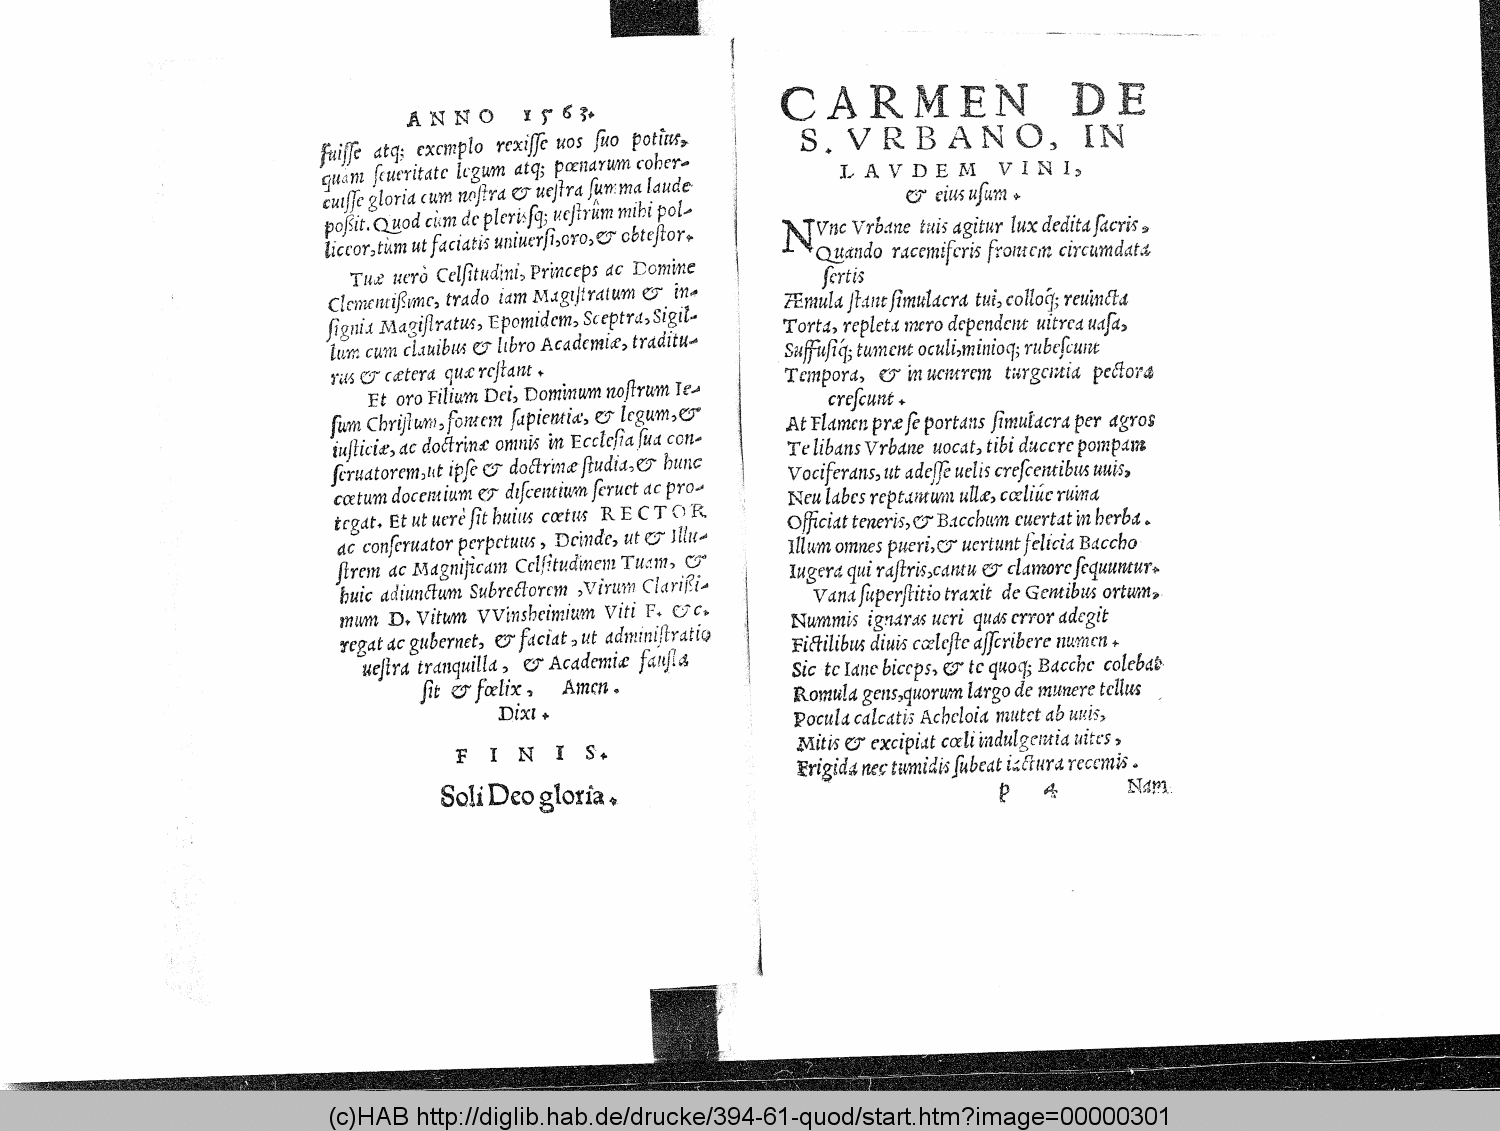 ANNO 1563.
fuiſſe atq; exemplo rexiſſe uos ſuo potius,
quàm ſeueritate legum atq; pœnarum coher-
cuiſſe gloria cum noſtra & ueſtra ſumma laude
poßit. Quod cùm de pleriſq; ueſtrûm mihi pol-
liceor, tùm ut faciatis uniuerſi, oro, & obteſtor.
Tuæ uerò Celſitudini, Princeps ac Domine
Clementißime, trado iam Magiſtratum & in-
ſignia Magiſtratus, Epomidem, Sceptra, Sigil-
lum cum clauibus & libro Academiæ, traditu-
rus & cætera quæ reſtant.
Et oro Filium Dei, Dominum noſtrum Ie-
ſum Chriſtum, fontem ſapientiæ, & legum, &
iuſticiæ, ac doctrinæ omnis in Eccleſia ſua con-
ſeruatorem, ut ipſe & doctrinæ ſtudia, & hunc
cœtum docentium & diſcentium ſeruet ac pro-
tegat. Et ut uerè ſit huius cœtus RECTOR
ac conſeruator perpetuus, Deinde, ut & Illu-
ſtrem ac Magnificam Celſitudinem Tuam, &
huic adiunctum Subrectorem, Virum Clarißi-
mum D. Vitum VVinsheimium Viti F. &c.
regat ac gubernet, & faciat, ut adminiſtratio
ueſtra tranquilla, & Academiæ fauſta
ſit & fœlix, Amen.
Dixi.
FINIS.
Soli Deo gloria.
CARMEN DE
S. VRBANO, IN
LAVDEM VINI,
& eius uſum.
NVnc Vrbane tuis agitur lux dedita ſacris,
Quando racemiferis frontem circumdata
ſertis
Æmula ſtant ſimulacra tui, colloq́; reuincta
Torta, repleta mero dependent uitrea uaſa,
Suffuſiq́; tument oculi, minioq; rubeſcunt
Tempora, & in uentrem turgentia pectora
creſcunt.
At Flamen præ ſe portans ſimulacra per agros
Te libans Vrbane uocat, tibi ducere pompam
Vociferans, ut adeſſe uelis creſcentibus uuis,
Neu labes reptantum ullæ, cœliúe ruina
Officiat teneris, & Bacchum euertat in herba.
Illum omnes pueri, & uertunt felicia Baccho
Iugera qui raſtris, cantu & clamore ſequuntur.
Vana ſuperſtitio traxit de Gentibus ortum,
Nummis ignaras ueri quas error adegit
Fictilibus diuis cœleſte aſſcribere numen.
Sic te Iane biceps, & te quoq; Bacche colebat
Romula gens, quorum largo de munere tellus
Pocula calcatis Acheloia mutet ab uuis,
Mitis & excipiat cœli indulgentia uites,
Frigida nec tumidis ſubeat iactura recemis.
P 4 Nam
(c)HAB http://diglib.hab.de/drucke/394-61-quod/start.htm?image=00000301